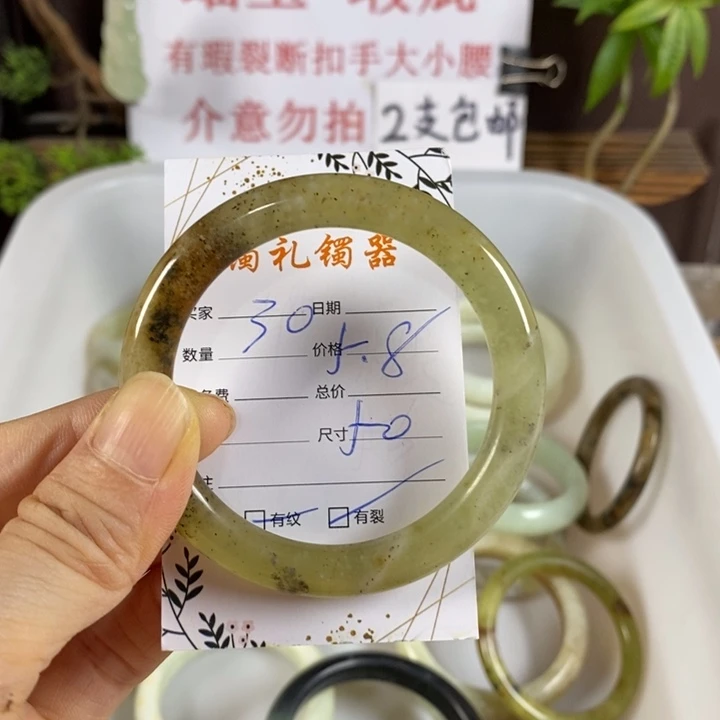 有瑕裂断扣手大小腰
介意勿拍 2支包邮
礼镯器
买家 30 日期
数量 价格 5.8
费 总价
尺寸 50
注
有纹 有裂